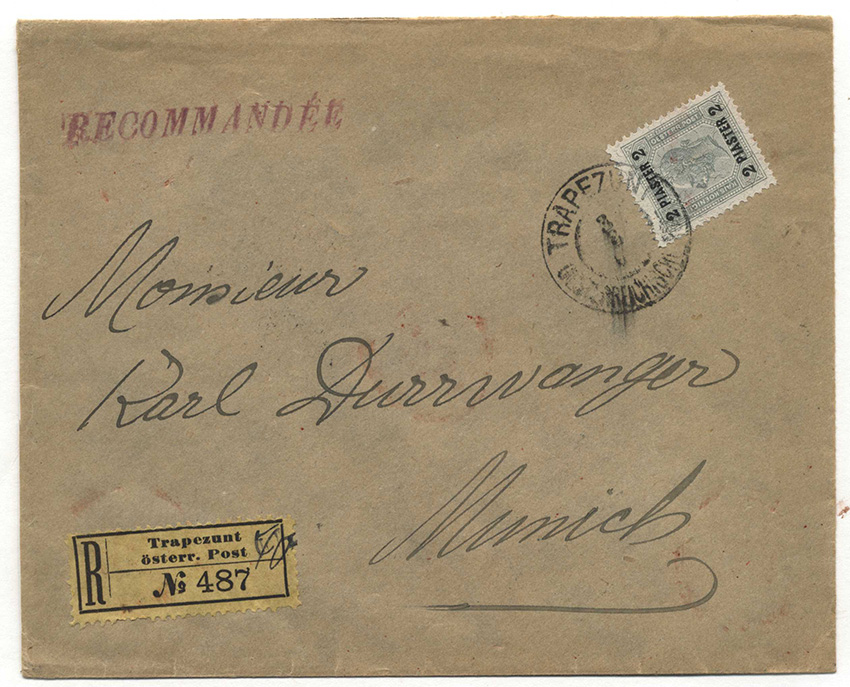 RECOMMANDÉE
2 PIASTER 2
2 PIASTER 2
TRAPEZUN
Monsieur
Karl Durrwanger
Munich
R
Trapezunt
österr. Post
№ 487